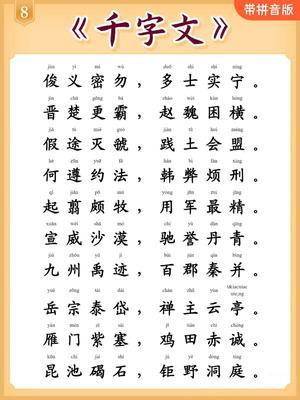 8
带拼音版
《千字文》
jùn yì mì wù duō shì shí níng
俊义密勿，多士实宁。
jìn chǔ gēng bà zhào wèi kùn héng
晋楚更霸，赵魏困横。
jiǎ tú miè guó jiàn tǔ huì méng
假途灭虢，践土会盟。
hé zūn yuē fǎ hán bì fán xíng
何遵约法，韩弊烦刑。
qǐ jiǎn pō mù yòng jūn zuì jīng
起翦颇牧，用军最精。
xuān wēi shā mò chí yù dān qīng
宣威沙漠，驰誉丹青。
jiǔ zhōu yǔ jì bǎi jùn qín bìng
九州禹迹，百郡秦并。
yuè zōng tài dài
岳宗泰岱，禅主云亭。
yàn mén zǐ sài jī tián chì chéng
雁门紫塞，鸡田赤诚。
kūn chí jié shí jù yě dòng tíng
昆池碣石，钜野洞庭。